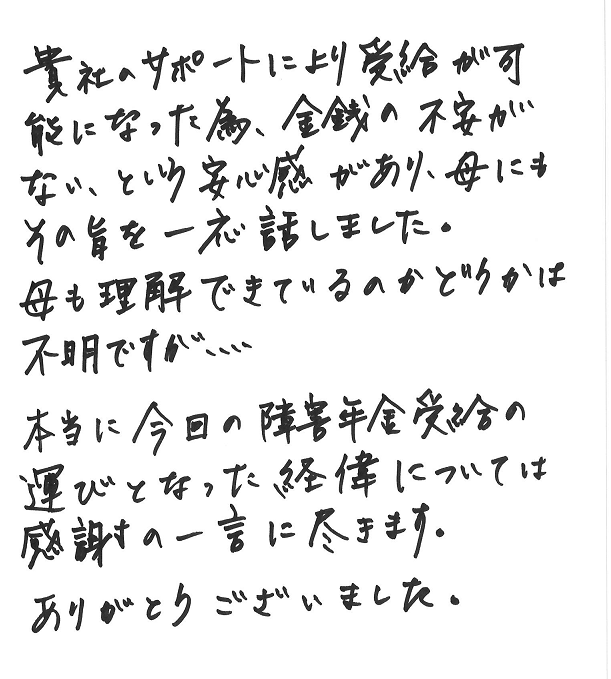 貴社のサポートにより受給が可
能になった為、金銭の不安が
ない、という安心感があり、母にも
その旨を一応話しました。
母も理解できているのかどうかは
不明ですが、、、、
本当に今回の障害年金受給の
運びとなった経偉については
感謝の一言に尽きます。
ありがとうございました。